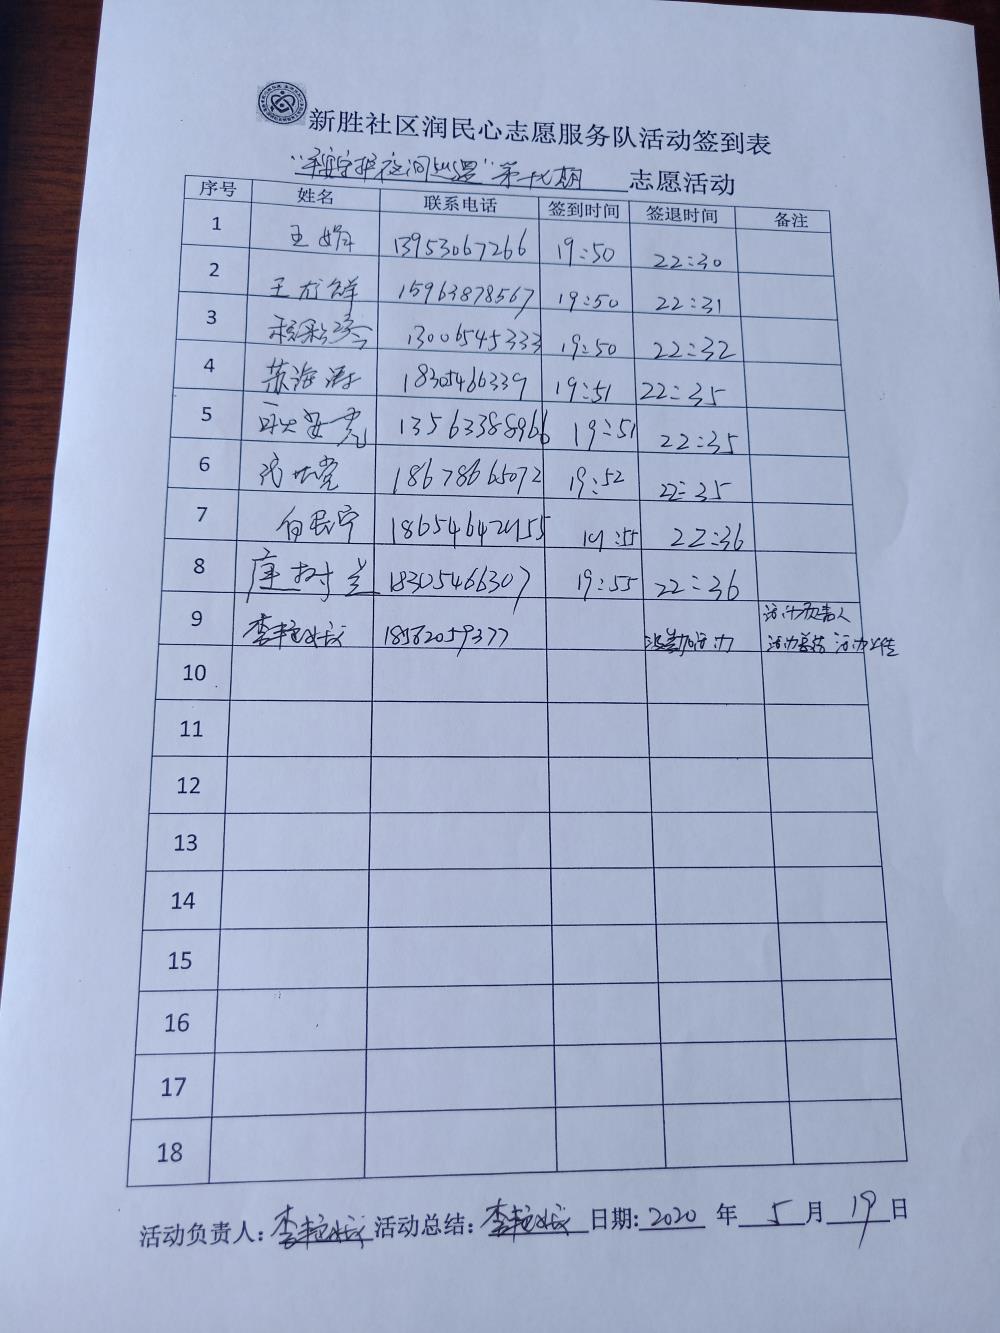 新胜社区润民心志愿服务队活动签到表
"平安守护夜间巡逻"第十七期 志愿活动
序号 姓名 联系电话 签到时间 签退时间 备注
1 王娟 13953067266 19:50 22:30
2 王龙祥 15963878567 19:50 22:31
3 13006545333 19:50 22:32
4 苏海涛 18305466339 19:51 22:35
5 13563388966 19:51 22:35
6 18678665072 19:52 22:35
7 向民宁 18654642455 19:55 22:36
8 唐树兰 18305466307 19:55 22:36
9 李艳 18562059377 没参加活动 活动负责人
活动总结 活动上传
10
11
12
13
14
15
16
17
18
活动负责人: 李艳 活动总结: 李艳 日期: 2020 年 5 月 19 日